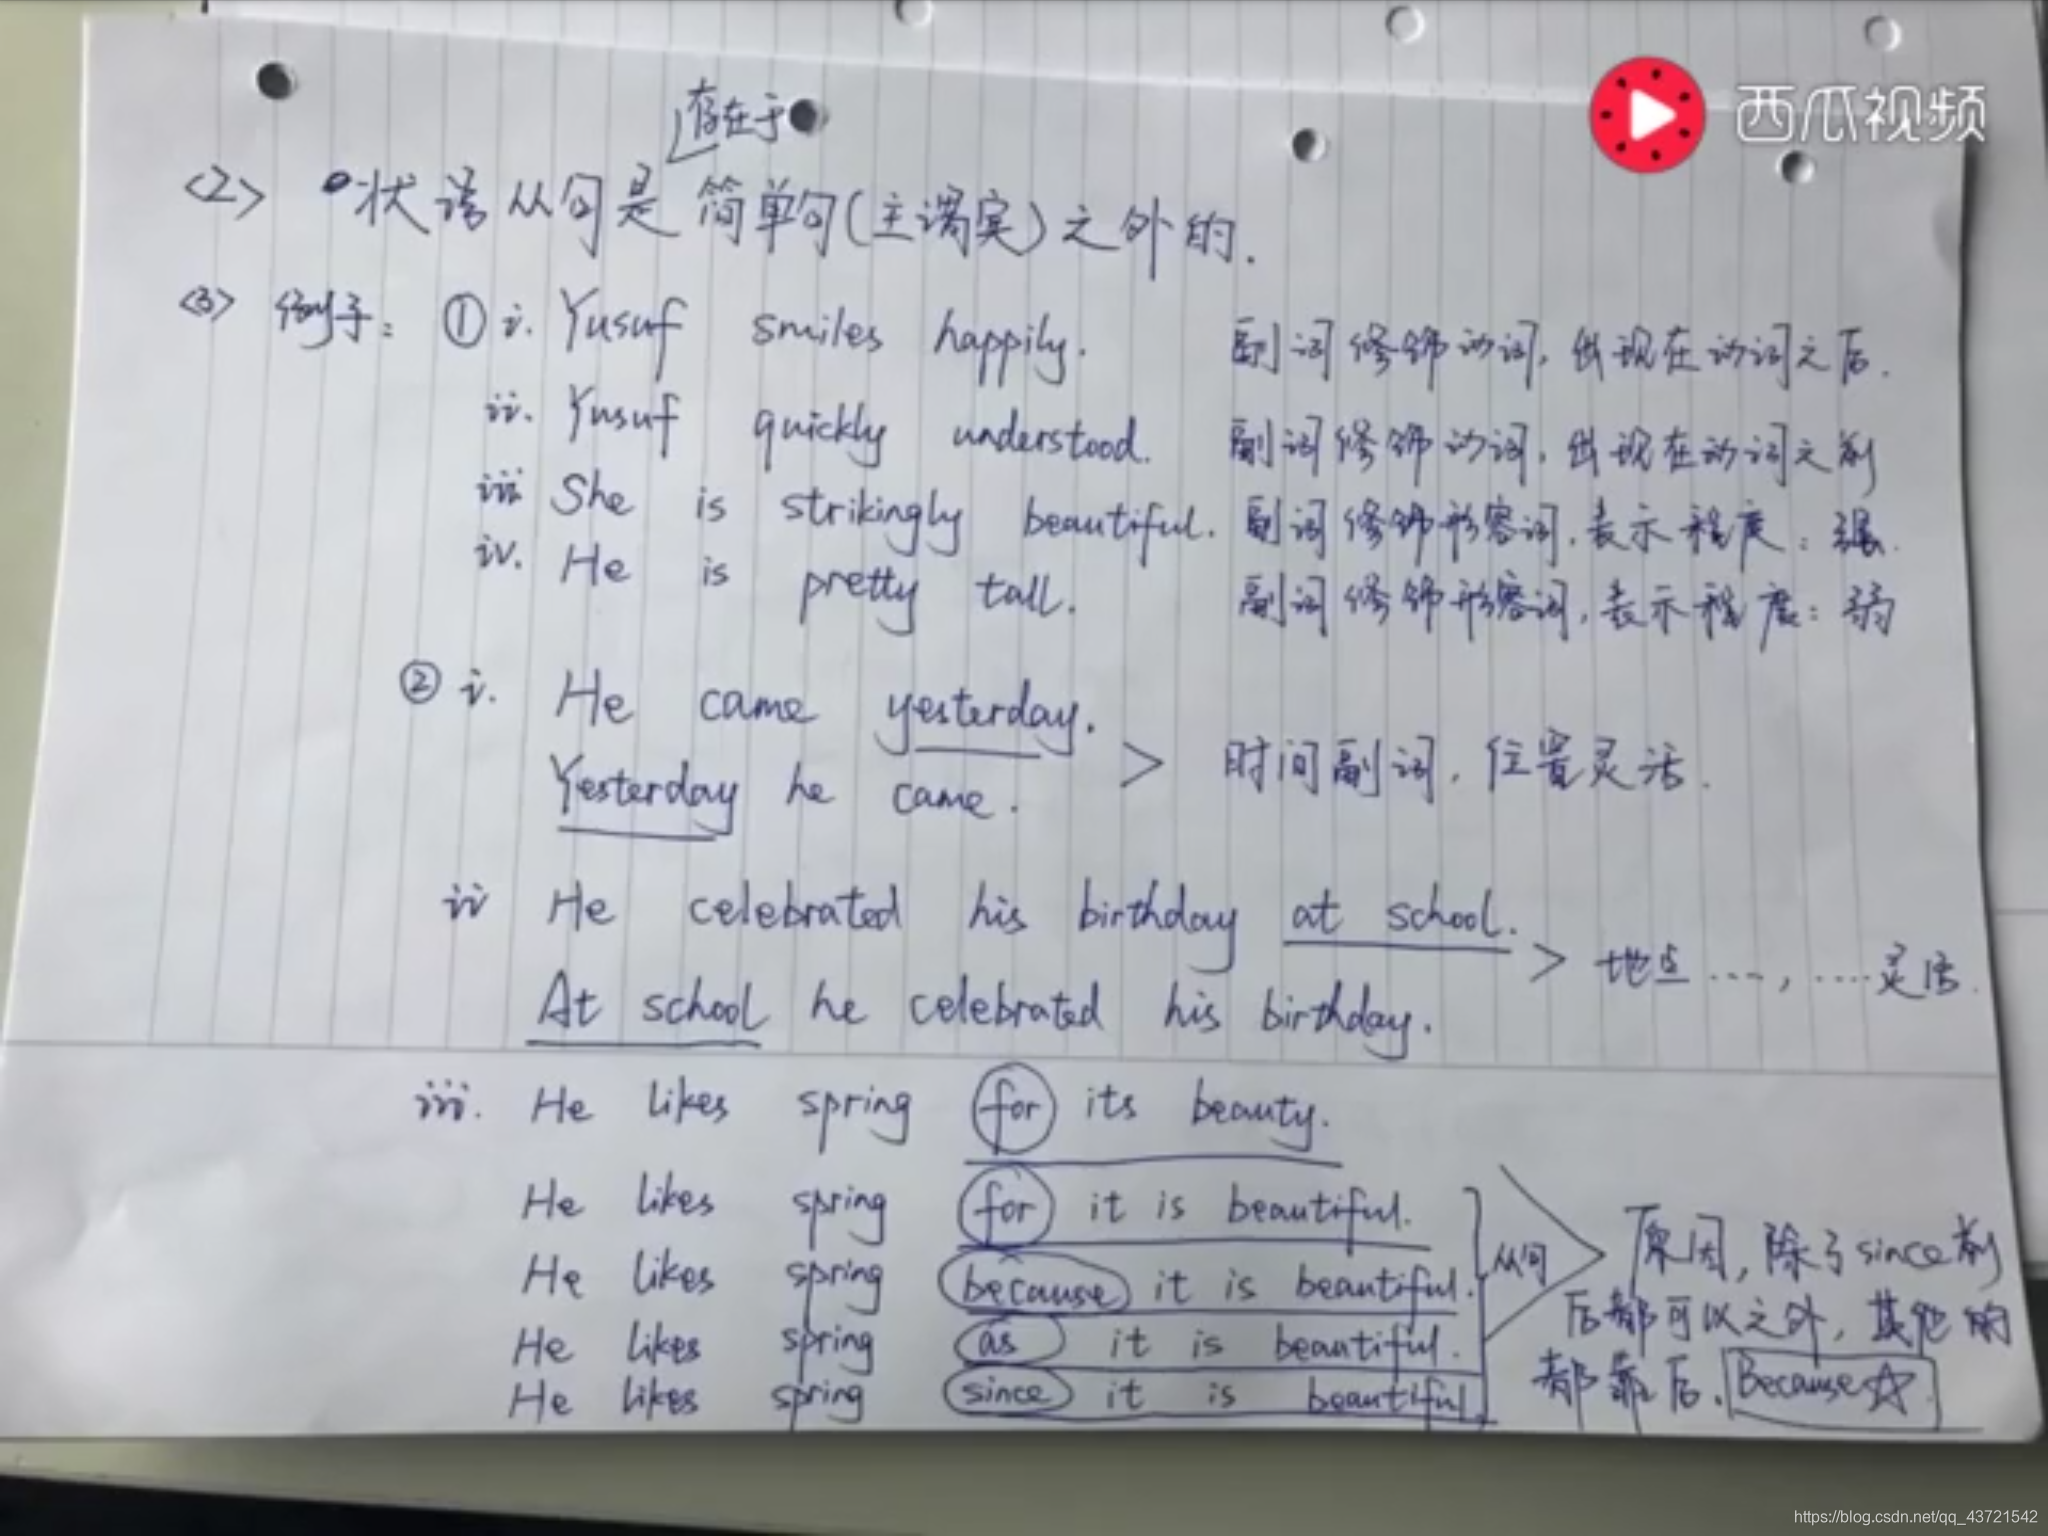 西瓜视频
存在于
<2> 状语从句是简单句(主谓宾)之外的.
<3> 例子: ① i. Yusuf smiles happily. 副词修饰动词, 出现在动词之后.
ii. Yusuf quickly understood. 副词修饰动词, 出现在动词之前
iii She is strikingly beautiful. 副词修饰形容词, 表示程度: 强.
iv. He is pretty tall. 副词修饰形容词, 表示程度: 弱
② i. He came yesterday.
Yesterday he came. > 时间副词, 位置灵活.
ii He celebrated his birthday at school.
> 地点 ...., ..... 灵活.
At school he celebrated his birthday.
iii. He likes spring for its beauty.
He likes spring for it is beautiful.
He likes spring because it is beautiful.
He likes spring as it is beautiful.
He likes spring since it is beautiful.
从句
原因, 除了since前
后都可以之外, 其他的
都靠后. Because☆.
https://blog.csdn.net/qq_43721542